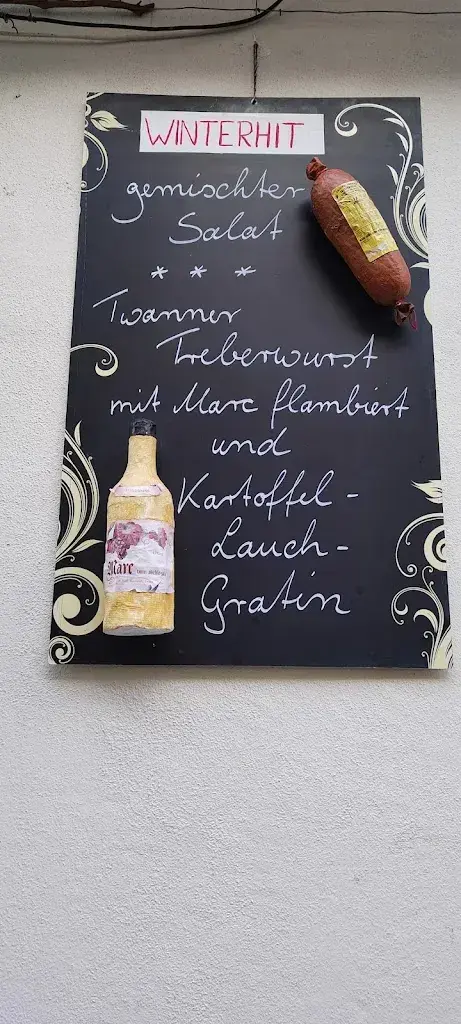 WINTERHIT
gemischter
Salat
* * *
Twanner
Treberwurst
mit Marc flambiert
und
Kartoffel-
Lauch-
Gratin
Marc